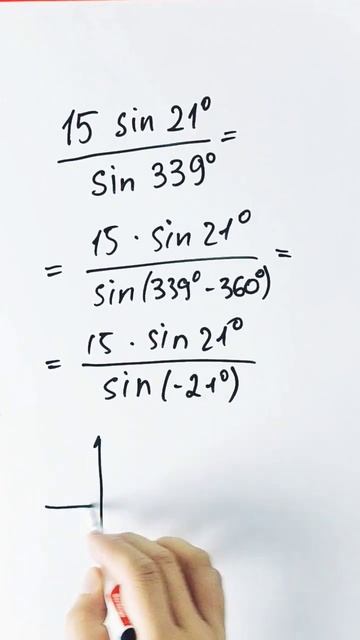 15 sin 21° / sin 339° =
= 15 · sin 21° / sin(339° - 360°) =
= 15 · sin 21° / sin(-21°)